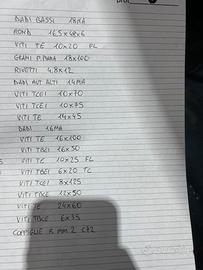 DADI BASSI 18MA
ROND 16,5x48x6
VITI TE 10x20 FL
GRANI P. PIANA 18x100
RIVETTI 4,8x12
DADI AUT ALTI 14MA
VITI TCEI 10x70
VITI TCEI 10x75
VITI TE 14x45
DADI 16MA
VITI TE 16x100
VITI TBCEI 16x50
VITI TE 10x25 FL
VITI TBEI 6x20 TC
VITI TCEI 8x125
VITI TBCE 12x50
VITI TE 24x60
VITI TBCE 6x35
COPIGLIE R MM 2 C72